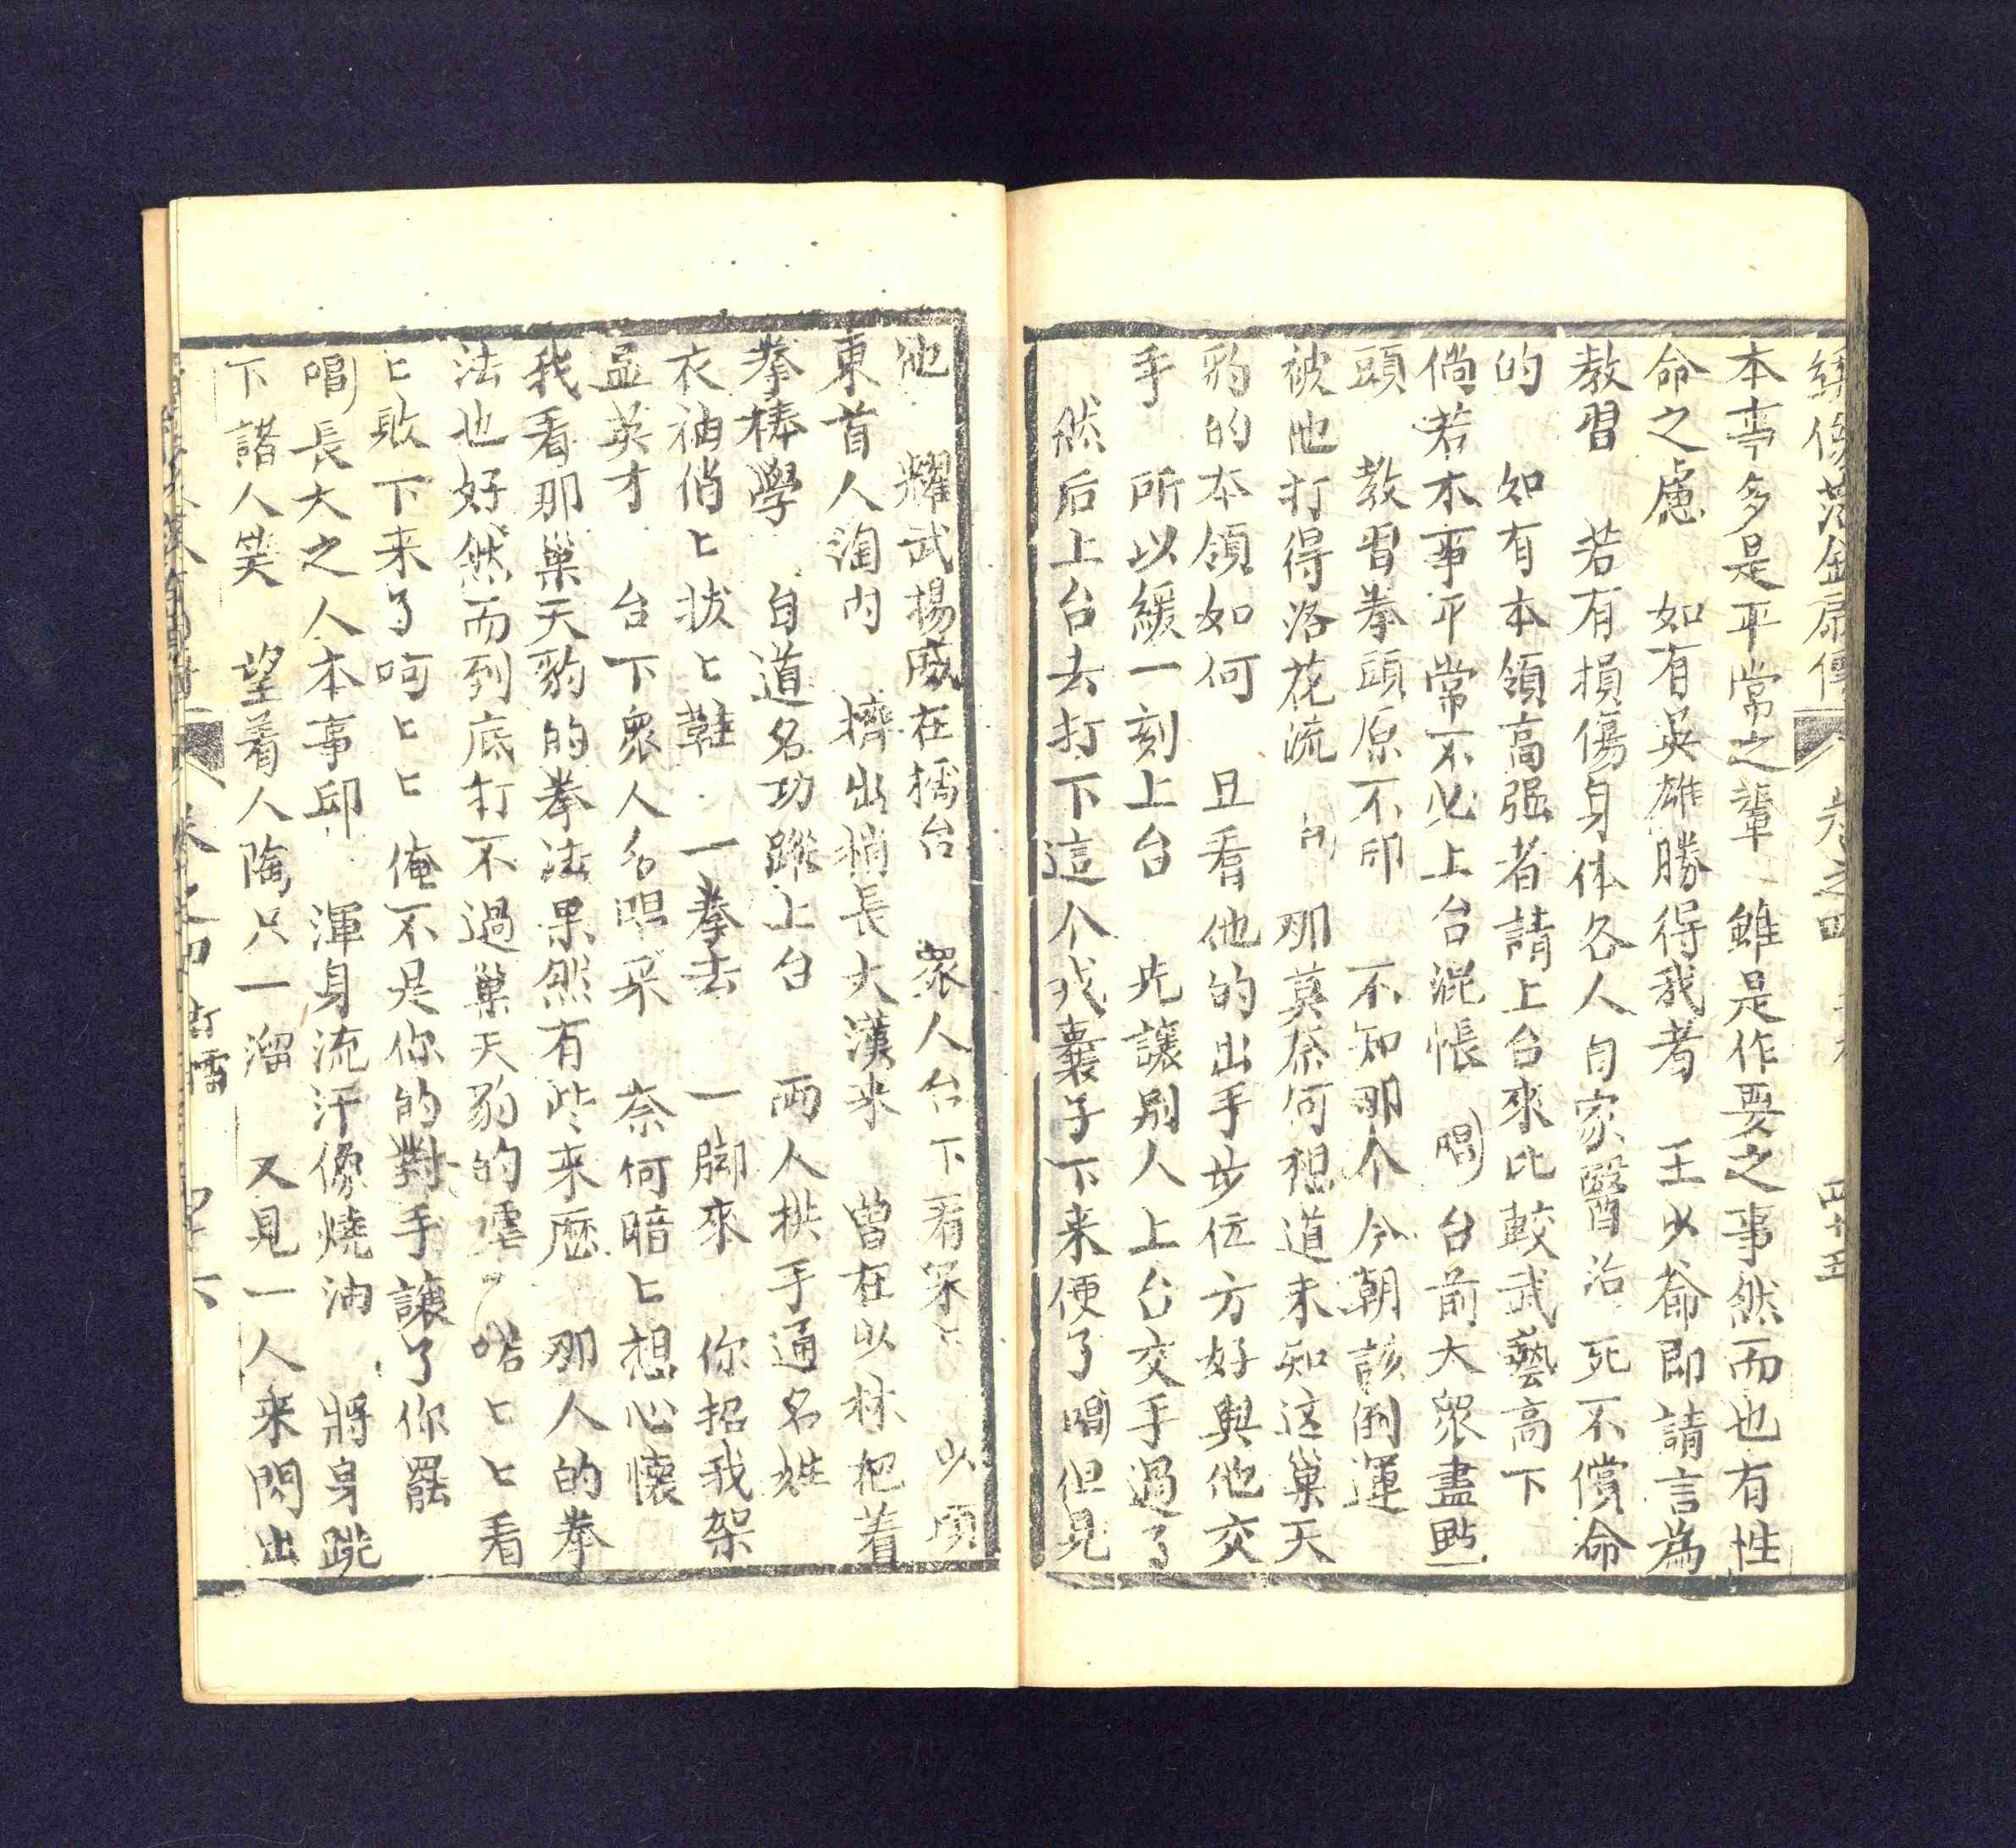 本事多是平常之輩 雖是作耍之事然而也有性
命之慮 如有英雄勝得我者 王少爺即請言為
教習 若有損傷身体各人自家醫治 死不償命
的 如有本領高强者請上台來比較武藝高下
倘若本事平常不必上台混帳 唱 台前大眾盡點
頭 教習拳頭原不邱 不知那个今朝該倒運
被他打得洛花流 白 那莫奈何想道未知这巢天
豹的本領如何 且看他的出手步位方好與他交
手 所以緩一刻上台 先讓别人上台交手過了
然后上台去打下這个戎囊子下来便了 唱 但見
他 耀武揚威在擂台 眾人台下看呆匕 以頭
東首人淘内 擠出搊長大漢来 曾在以林把着
拳棒學 自道名功蹤上台 兩人拱手通名姓
衣袖俏匕扷匕鞋 一拳去 一脚來 你招我架
孟英才 台下眾人名喟采 奈何暗匕想心懷
我看那巢天豹的拳法果然有些来歴 那人的拳
法也好然而到底打不過巢天豹的 喏匕匕看
匕敗下来了呵匕匕 俺不是你的對手讓了你罷
唱 長大之人本事邱 渾身流汗像燒油 將身跳
下諎人笑 望着人陶只一溜 又見一人来閃出